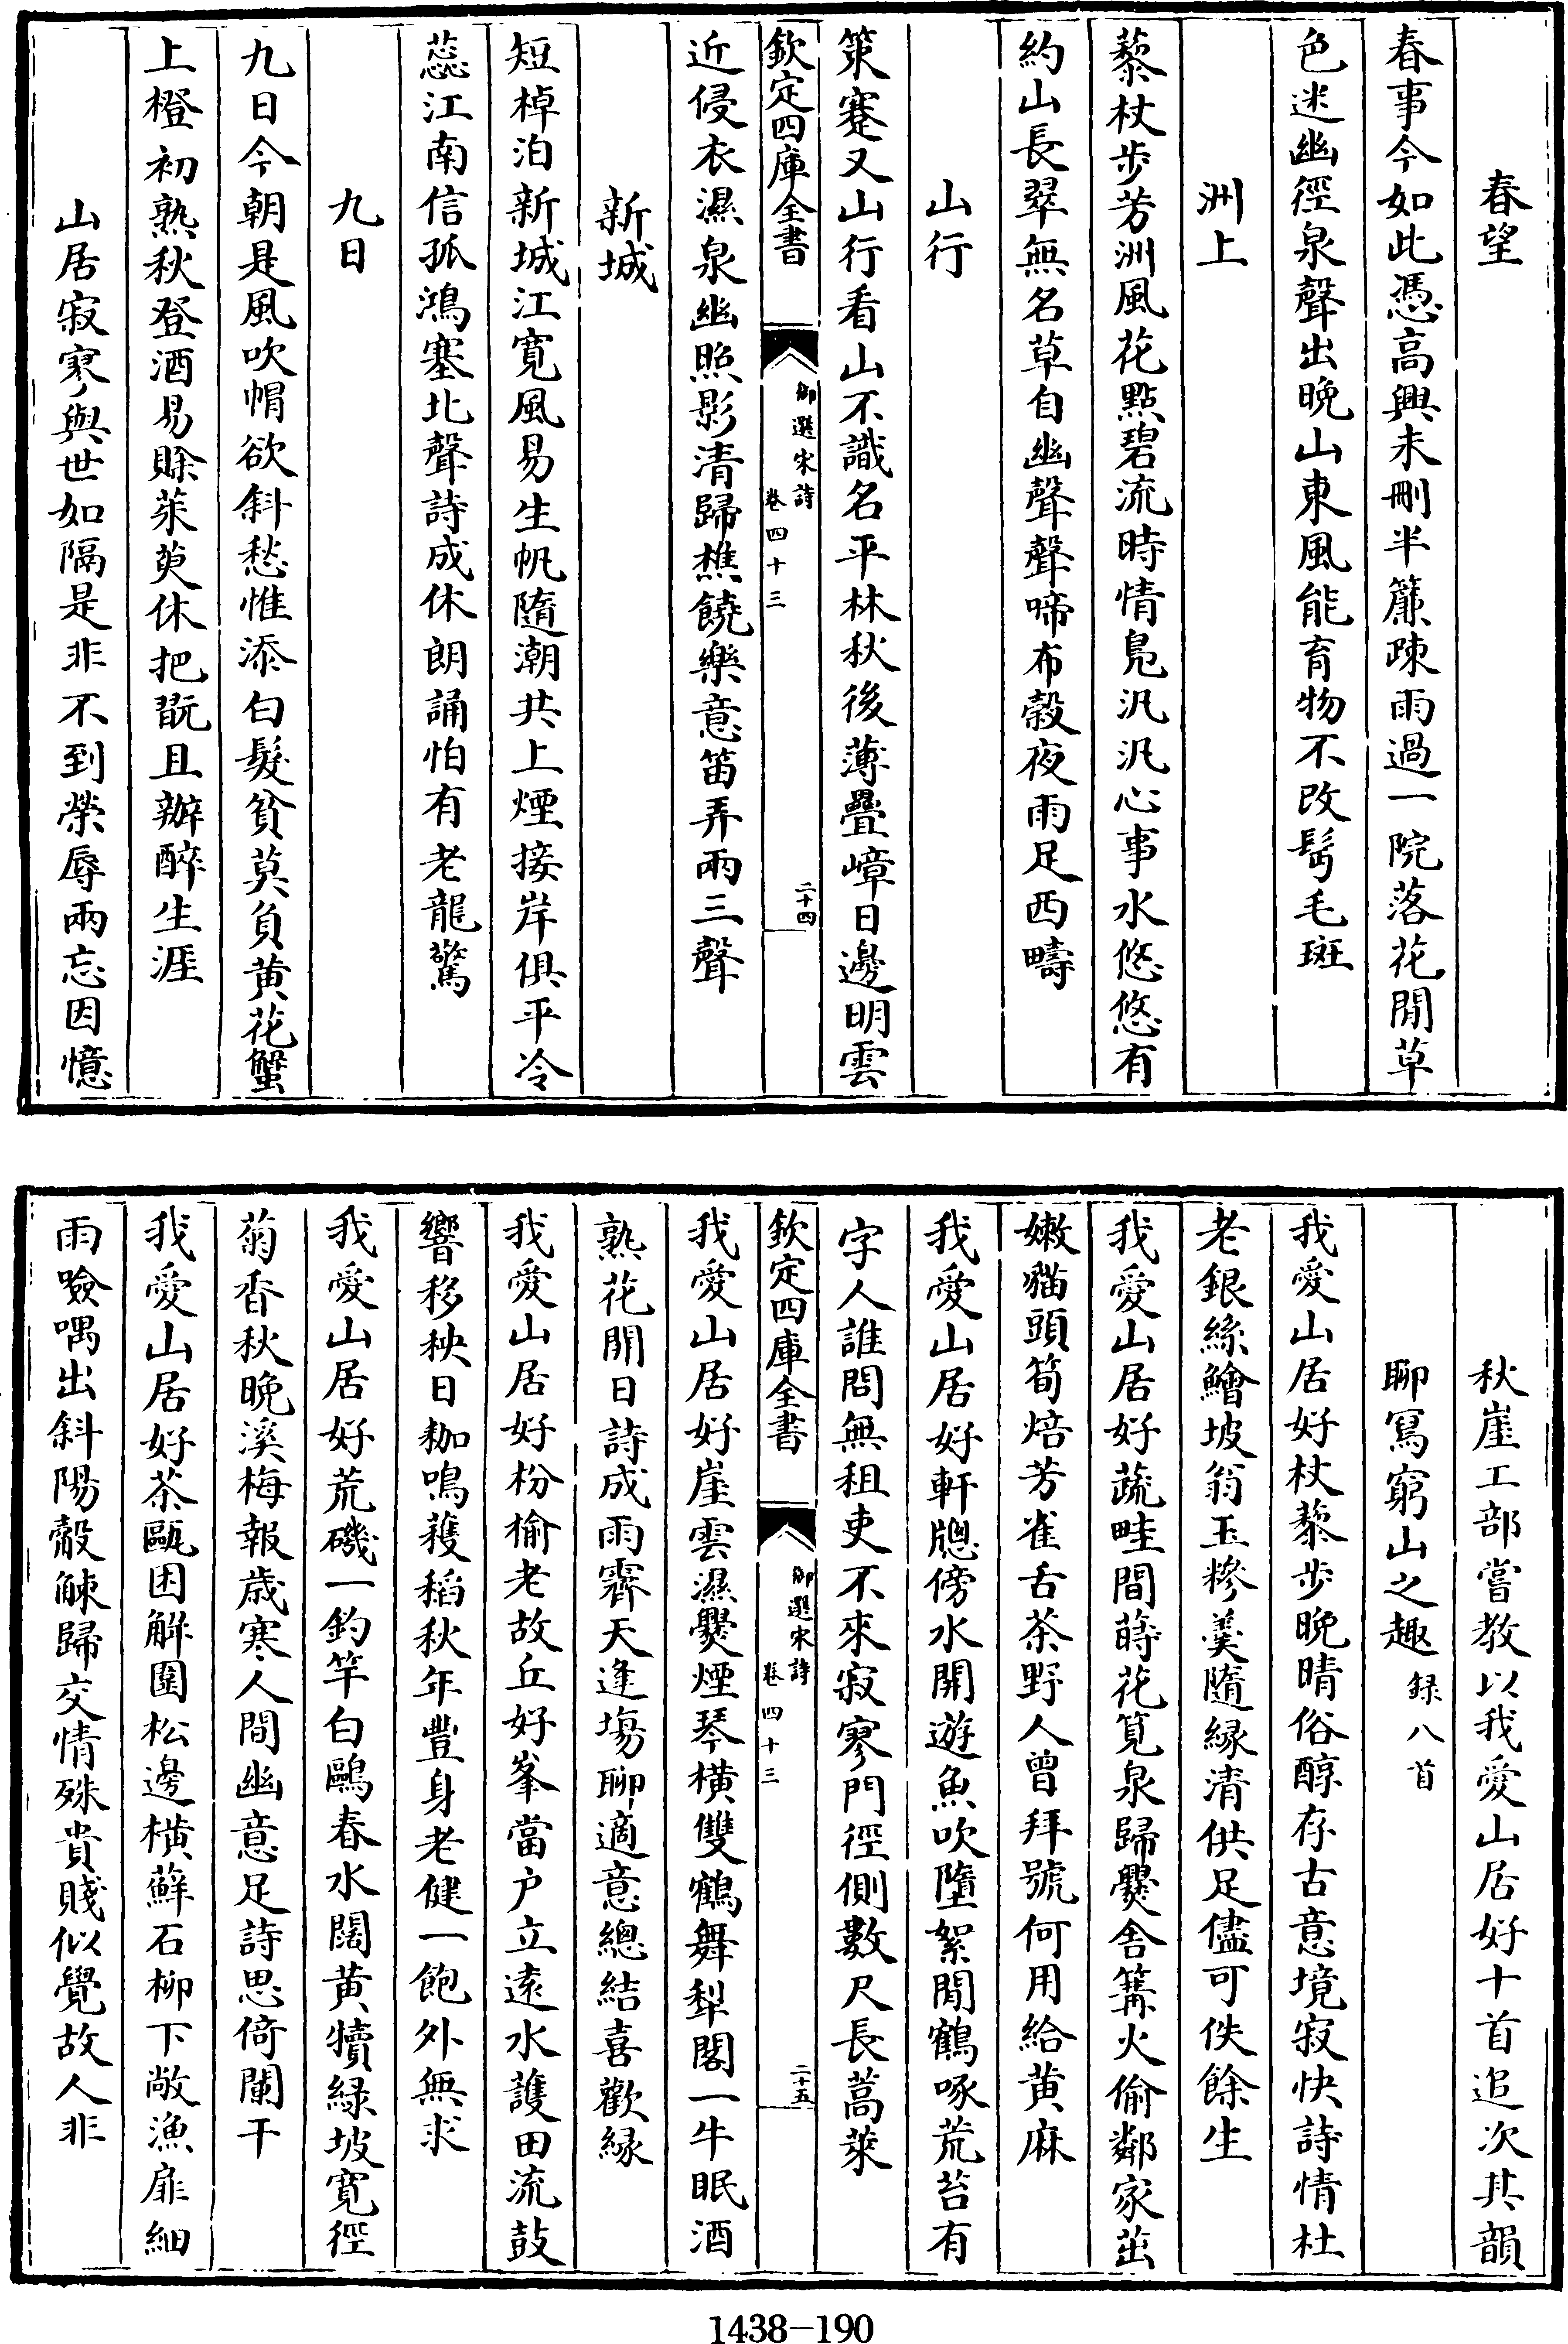 春望
春事今如此憑高興未刪半簾疎雨過一院落花閒草
色迷幽徑泉聲出晩山東風能育物不改髩毛斑
洲上
藜杖步芳洲風花點碧流時情鳬汎汎心事水悠悠有
約山長翠無名草自幽聲聲啼布穀夜雨足西疇
山行
策蹇又山行看山不識名平林秋後薄疊嶂日邊明雲
欽定四庫全書
御選宋詩
卷四十三
二十四
近侵衣濕泉幽照影清歸樵饒樂意笛弄兩三聲
新城
短棹泊新城江寛風易生帆隨潮共上煙接岸俱平冷
蕊江南信孤鴻塞北聲詩成休朗誦怕有老龍驚
九日
九日今朝是風吹帽欲斜愁惟添白髮貧莫負黄花蟹
上橙初熟秋登酒易賖茱萸休把翫且辦醉生涯
山居寂寥與世如隔是非不到榮辱兩忘因憶
秋崖工部嘗教以我愛山居好十首追次其韻
聊寫窮山之趣録八首
我愛山居好杖藜步晩晴俗醇存古意境寂快詩情杜
老銀絲鱠坡翁玉糝羮隨縁清供足儘可佚餘生
我愛山居好蔬畦間蒔花筧泉歸爨舍篝火偷鄰家茁
嫩貓頭筍焙芳雀舌茶野人曾拜號何用給黄麻
我愛山居好軒牎傍水開遊魚吹墮絮閒鶴啄荒苔有
字人誰問無租吏不來寂寥門徑側數尺長蒿萊
欽定四庫全書
御選宋詩
卷四十三
二十五
我愛山居好崖雲濕爨煙琴横雙鶴舞犁閣一牛眠酒
熟花開日詩成雨霽天逢塲聊適意總結喜歡縁
我愛山居好枌榆老故丘好峯當户立遠水護田流鼓
響移秧日耞鳴穫稻秋年豐身老健一飽外無求
我愛山居好荒磯一釣竿白鷗春水闊黄犢緑坡寛徑
菊香秋晩溪梅報歳寒人間幽意足詩思倚闌干
我愛山居好茶甌困解圍松邊横蘚石柳下敞漁扉細
雨噞喁出斜陽觳觫歸交情殊貴賤似覺故人非
1438-190